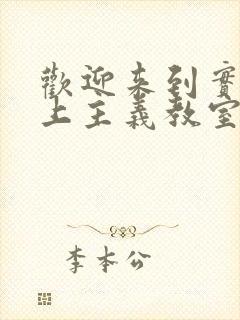 歡迎來到實
上主義教室
李本公